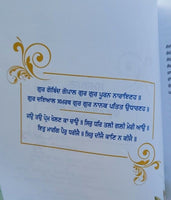 ਗੁਰ ਗੋਬਿੰਦ ਗੋਪਾਲ ਗੁਰ ਗੁਰ ਪੂਰਨ ਨਾਰਾਇਣਹ ॥
ਗੁਰ ਦਇਆਲ ਸਮਰਥ ਗੁਰ ਗੁਰ ਨਾਨਕ ਪਤਿਤ ਉਧਾਰਣਹ ॥
ਜਉ ਤਉ ਪ੍ਰੇਮ ਖੇਲਣ ਕਾ ਚਾਉ ॥ ਸਿਰੁ ਧਰਿ ਤਲੀ ਗਲੀ ਮੇਰੀ ਆਉ ॥
ਇਤੁ ਮਾਰਗਿ ਪੈਰੁ ਧਰੀਜੈ ॥ ਸਿਰੁ ਦੀਜੈ ਕਾਣਿ ਨ ਕੀਜੈ ॥